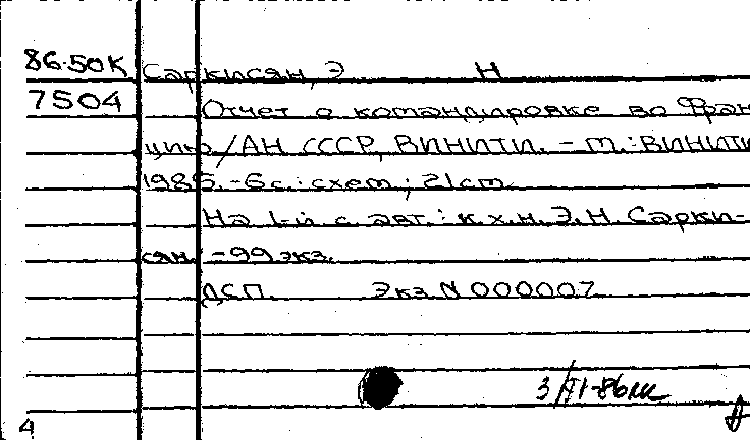 86-50К Саркисян, Э Н
7504 Отчет о командировке во Фран
цию / АН СССР, ВИНИТИ. - М.: ВИНИТИ
1985. - 6 с.: схем.; 21 см.
На 1-й с авт.: к.х.н. Э.Н. Сарки-
сян. - 99 экз.
ДСП. Экз. N 000007
4